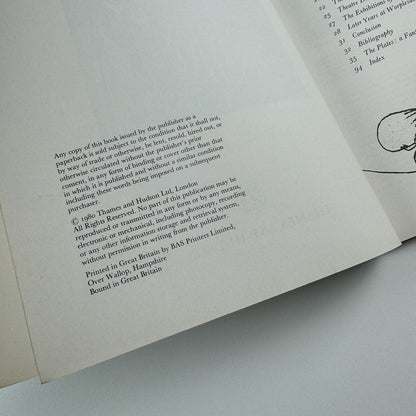 Any copy of this book issued by the publisher as a
paperback is sold subject to the condition that it shall not,
by way of trade or otherwise, be lent, resold, hired out, or
otherwise circulated without the publisher's prior
consent, in any form of binding or cover other than that
in which it is published and without a similar condition
including these words being imposed on a subsequent
purchaser.
© 1980 Thames and Hudson Ltd, London
All Rights Reserved. No part of this publication may be
reproduced or transmitted in any form or by any means,
electronic or mechanical, including photocopy, recording
or any other information storage and retrieval system,
without permission in writing from the publisher.
Printed in Great Britain by BAS Printers Limited,
Over Wallop, Hampshire
Bound in Great Britain
25 Theatre
27 The Exhibitions
28 Later Years at
31 Conclusion
32 Bibliography
35 The Plates: a
94 Index